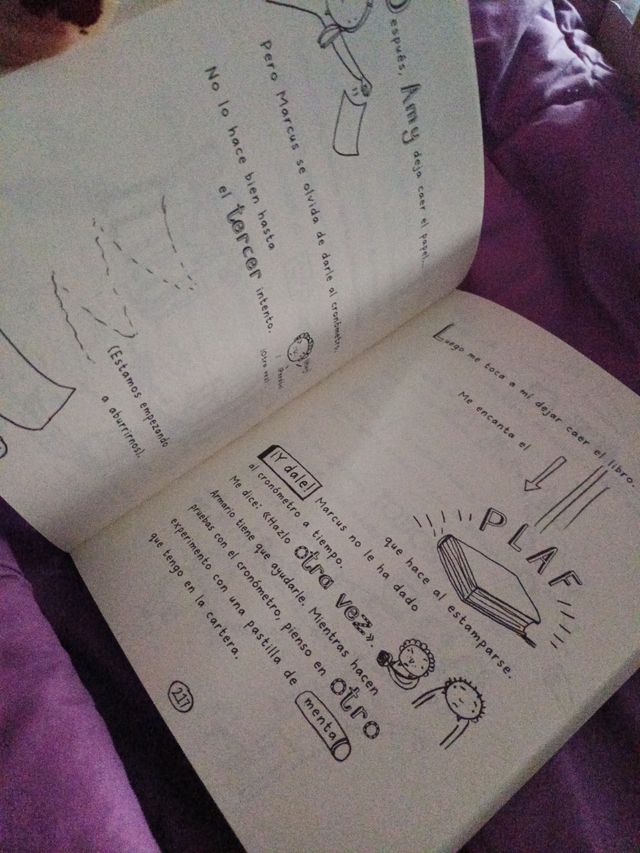 Después, Amy deja caer el papel...
Pero Marcus se olvida de darle al cronómetro.
No lo hace bien hasta
el tercer intento.
(Otra vez)
(Estamos empezando
a aburrirnos).
Luego me toca a mí dejar caer el libro.
Me encanta el
PLAF
que hace al estamparse.
¡Y dale! Marcus no le ha dado
al cronómetro a tiempo.
Me dice: «Hazlo otra vez».
Armario tiene que ayudarle. Mientras hacen
pruebas con el cronómetro, pienso en otro
experimento con una pastilla de menta
que tengo en la cartera.
217